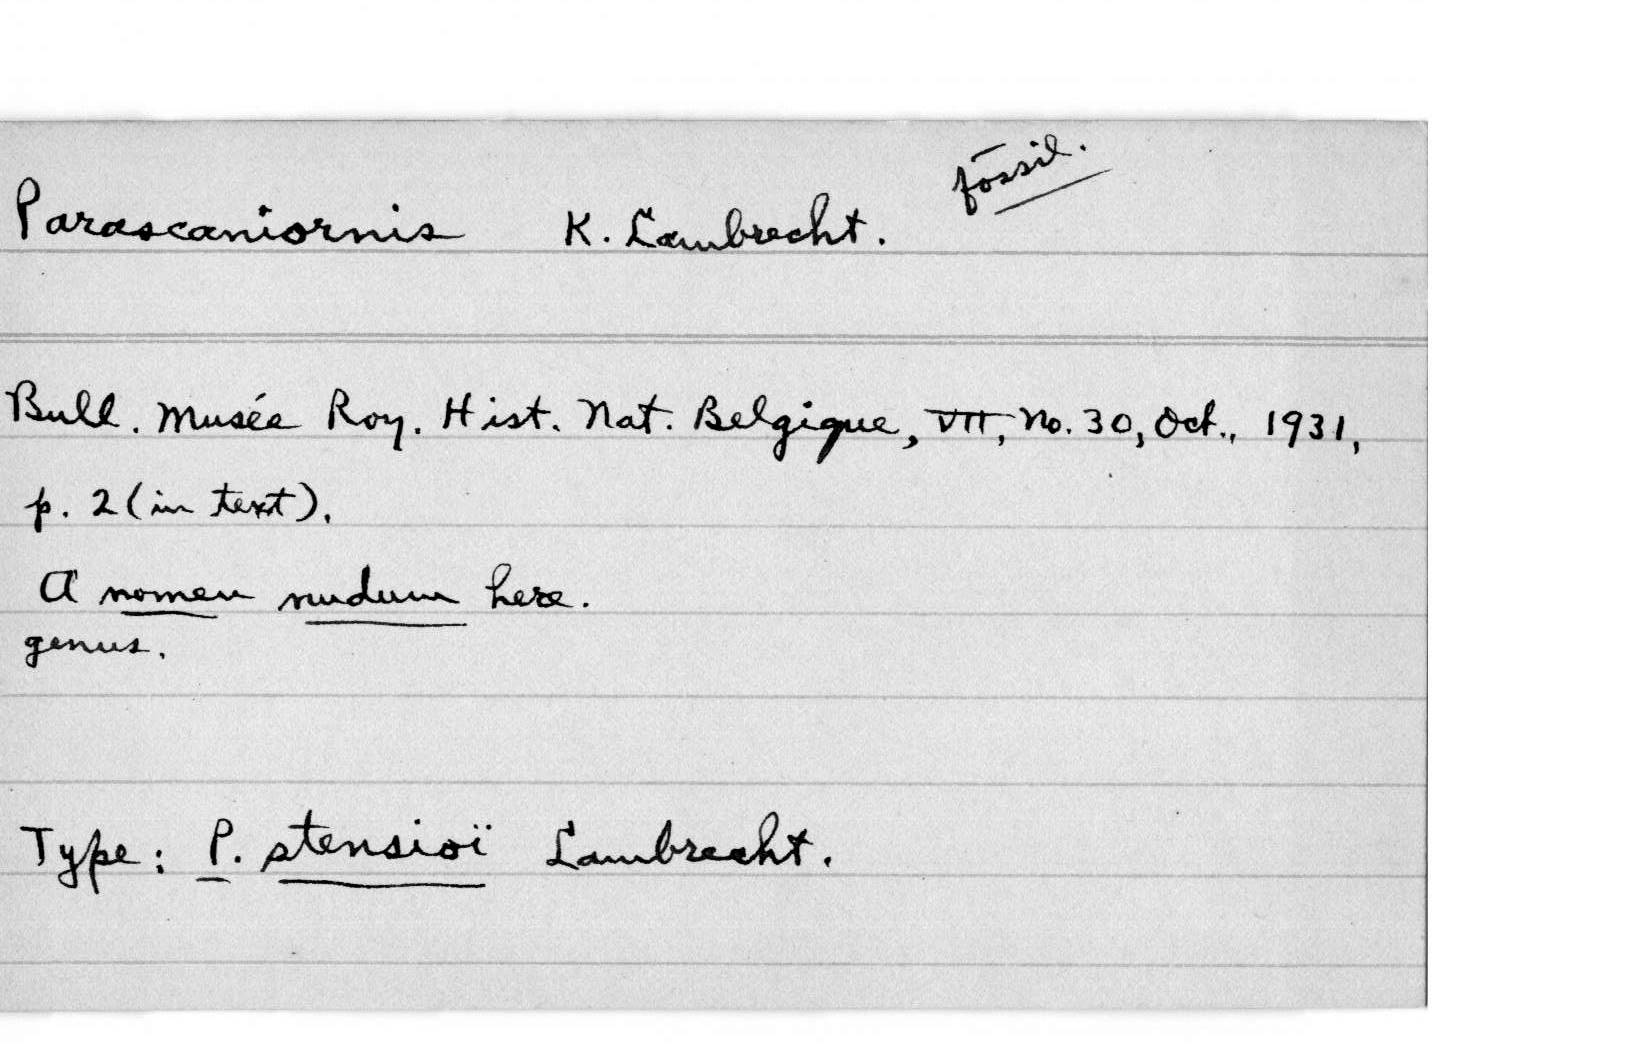 fossil.
Parascaniornis K. Lambrecht.
Bull. Musée Roy. Hist. Nat. Belgique, VII, No. 30, Oct., 1931,
p. 2 (in text).
A nomen nudum here.
genus.
Type: P. stensioï Lambrecht.